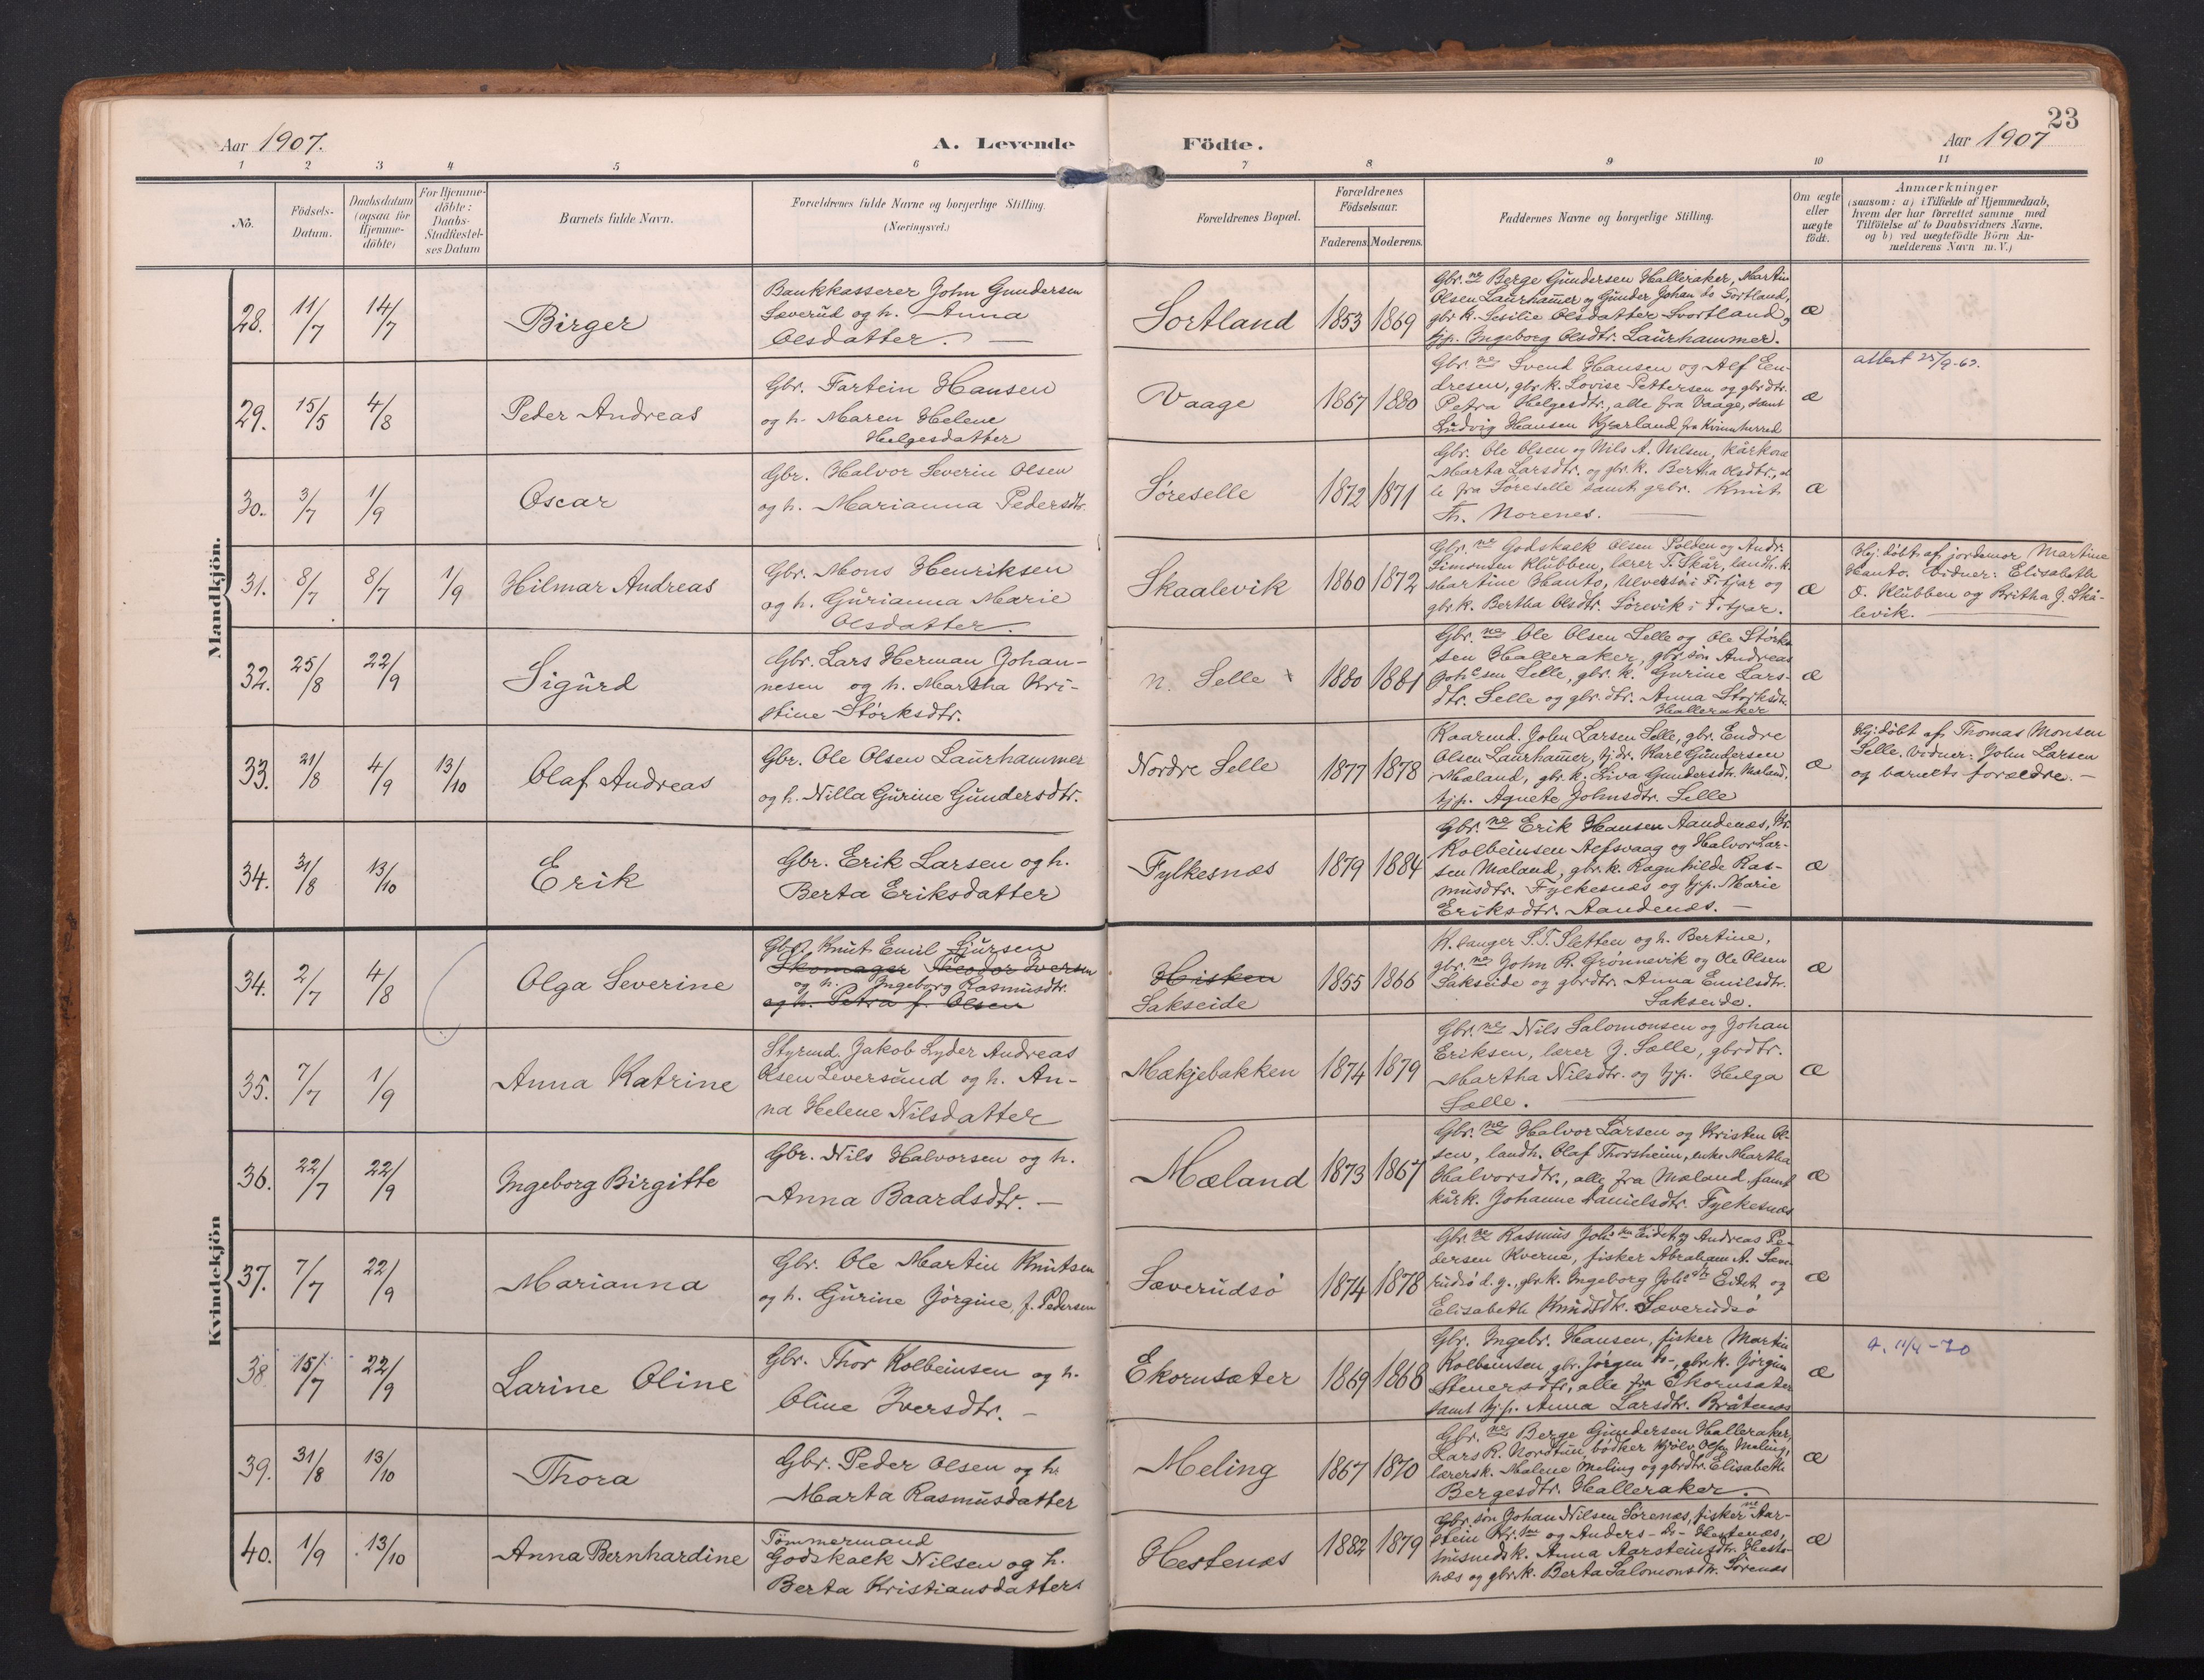 23
Aar 1907.
A. Levende
Födte.
Aar 1907
1 2 3 4 5 6 7 8 9 10 11
No.
Födsels-
Datum.
Daabsdatum
(ogsaa for
Hjemme-
döbte)
For Hjemme-
döbte:
Daabs-
Stadfæstel-
ses Datum
Barnets fulde Navn.
Forældrenes fulde Navne og borgerlige Stilling.
(Næringsvei.)
Forældrenes Bopæl.
Forældrenes
Födselsaar.
Faderens.
Moderens.
Faddernes Navne og borgerlige Stilling.
Om ægte
eller
uægte
födt.
Anmærkninger
(saasom: a) i Tilfælde af Hjemmedaab,
hvem der har forrettet samme med
Tilföielse af to Daabsvidners Navne.
og b) ved uægtefödte Börn An-
melderens Navn m. V.)
Mandkjön.
28. 11/7 14/7
Birger
Bankkasserer John Gundersen
Sæverud og h. Anna
Olsdatter. —
Sortland
1853 1869
Gbr. ne Berge Gundersen Halleraker, Martin
Olsen Laurhammer og Gunder Johan do Sortland,
gbr k. Sesilie Olsdatter Svortland,
tjp. Ingeborg Olsdtr. Laurhammer.
æ
29. 15/5 4/8
Peder Andreas
Gbr. Fartein Hansen
og h. Maren Helene
Helgesdatter
Vaage
1867 1880
Gbr. ne Svend Hansen og Alf En-
dresen, gbr. k. Lovise Pettersen og gbrdtr.
Petra Helgesdtr., alle fra Vaage, samt
Ludvig Hansen Kjærland fra Kvinnherred
æ
attest 25/9-62.
30. 3/7 1/9
Oscar
Gbr. Halvor Severin Olsen
og h. Marianna Pedersdtr.
Söreselle
1872 1871
Gbr. Ole Olsen og Nils A. Nilsen, kårkone
Marta Larsdtr. og gbr. k. Bertha Olsdtr., al-
le fra Söreselle samt gbr. Knut
Th. Norenes. —
æ
31. 8/7 8/7 1/9
Hilmar Andreas
Gbr. Mons Henriksen
og h. Gurianna Marie
Olsdatter.
Skaalevik
1860 1872
Gbr. ne Godskalk Olsen Polden og Andr.
Simonsen Klubben, lærer T. Skår, landh. k.
Martine Hanto, Ulversöi i Fitjar og
gbr k. Bertha Olsdtr. Sörevik i Fitjar.
æ
Hj. döbt af jordemor Martine
Hanto. Vidner: Elisabeth
O. Klubben og Britha J. Skå-
levik.
32. 25/8 22/9
Sigurd
Gbr. Lars Herman Johan-
nesen og h. Martha Kri-
stine Störksdtr.
n. Selle
1880 1881
Gbr. ne Ole Olsen Selle og Ole Störk-
sen Halleraker, gbr. sön Andreas
Johsen Selle, gbr. k. Gurine Lars-
dtr. Selle og gbr. dtr. Anna Störksdtr.
Halleraker
æ
33. 21/8 4/9 13/10
Olaf Andreas
Gbr. Ole Olsen Laurhammer
og h. Nilla Gurine Gundersdtr.
Nordre Selle
1877 1878
Kaarmd. John Larsen Selle, gbr. Endre
Olsen Laurhammer, tj. dr. Karl Gundersen
Mæland, gbr. k. Siva Gundersdtr. Mæland.
tjp. Agnete Johnsdtr. Selle
æ
Hj. döbt af Thomas Monsen
Selle. Vidner: John Larsen
og barnets forældre. —
34. 31/8 13/10
Erik
Gbr. Erik Larsen og h.
Berta Eriksdatter
Fylkesnæs
1879 1884
Gbr. ne Erik Hansen Aandenæs, Kr.
Kolbeinsen Alfsvaag og Halvor Lar-
sen Mæland, gbr. k. Ragnhilde Ras-
musdtr. Fylkesnæs og tjp. Marie
Eriksdtr. Aandenæs. —
æ
Kvindekjön
34. 2/7 4/8
Olga Severine
Gbr. Knut Emil Sjursen
Skomager Theodor Iversen
og h. Ingeborg Rasmusdtr.
og h. Petra f. Olsen
Hisken
Sakseide
1855 1866
K.sanger S.T. Sletten og h. Bertine,
gbr. ne John R. Grönnevik og Ole Olsen
Sakseide og gbrdtr. Anna Emilsdtr.
Sakseide.
æ
35. 7/7 1/9
Anna Katrine
Styrmd. Jakob Lyder Andreas
Olsen Leversund og h. An-
na Helene Nilsdatter
Mækjebakken
1874 1879
Gbr. ne Nils Salomonsen og Johan
Eriksen, lærer J. Sælle, gbrdtr.
Martha Nilsdtr. og tjp. Helga
Sælle. —
æ
36. 22/7 22/9
Ingeborg Birgitte
Gbr. Nils Halvorsen og h.
Anna Baardsdtr. —
Mæland
1873 1867
Gbr. ne Halvor Larsen og Kristen Ol-
sen, landh. Olaf Thorsheim, enke Martha
Halvorsdtr., alle fra Mæland samt
kårk. Johanne Danielsdtr. Fylkesnæs
æ
37. 7/7 22/9
Marianna
Gbr. Ole Martin Knutsen
og h. Gurine Jörgine, f. Pedersen
Sæverudsö
1874 1878
Gbr. ne Rasmus Johsen Eidet, og Andreas Pe-
dersen Kverne, fisker Abraham A. Sæve-
rudsö d. y., gbr k. Ingeborg Johsdtr Eidet, og
Elisabeth Knudsdtr. Sæverudsö
æ
38 15/7 22/9
Larine Oline
Gbr. Thor Kolbeinsen og h.
Oline Iversdtr. —
Ekornsæter
1869 1868
Gbr. Ingebr. Hansen, fisker Martin
Kolbeinsen gbr. Jörgen do-, gbr. k. Jörgine
Stenersdtr, alle fra Ekornsæter
samt tj.p. Anna Larsdtr. Bråtenæs
æ
A. 11/4-70
39. 31/8 13/10
Thora
Gbr. Peder Olsen og h.
Marta Rasmusdatter
Meling
1867 1870
Gbr. ne Berge Gundersen Halleraker,
Lars R. Nordtun, bödker Kjölv Olsen Meling,
lærersk. Malene Meling og gbrdtr. Elisabeth
Bergesdtr. Halleraker.
æ
40. 1/9 13/10
Anna Bernhardine
Tömmermand
Godskalk Nilsen og h.
Berta Kristiansdatter
Hestenæs
1882 1879
Gbr. sön Johan Nilsen Sörenæs, fisker ne Aar-
stein Kr. sen og Anders - do - Hestenæs,
husmdsk. Anna Aarsteinsdtr. Heste-
næs og gbr. k. Berta Salomonsdtr. Sörenæs
æ